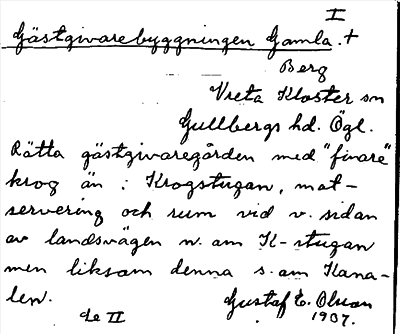 I
Gästgivarebyggningen Gamla. +
Berg
Vreta Kloster sn
Gullbergs hd. Ögl.
Rätta gästgivaregården med "finare"
krog än i Krogstugan, mat-
servering och rum vid v. sidan
av landsvägen n. om K-stugan
men liksom denna s. om Kana-
len.
Gustaf E. Olsson
1907.
se II